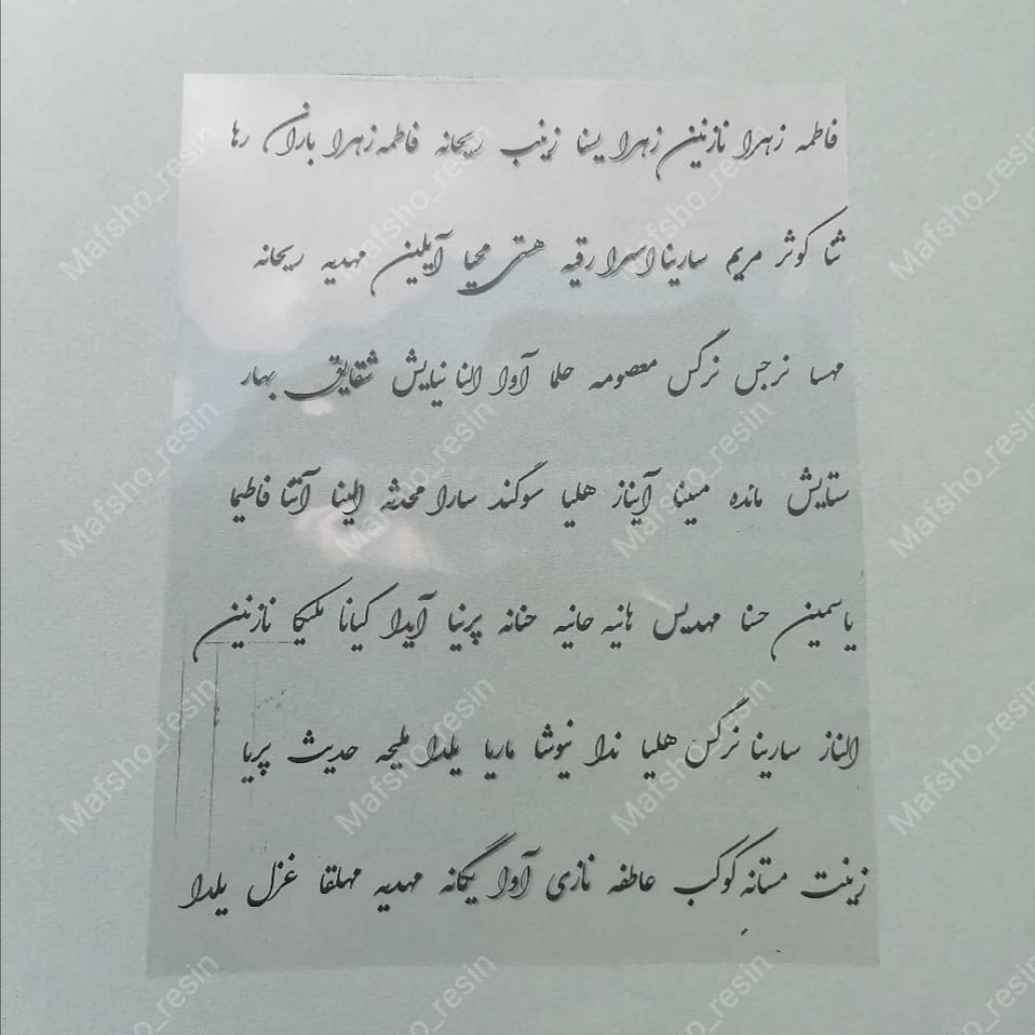 فاطمه زهرا نازنین زهرا یسنا زینب ریحانه فاطمه زهرا باران رها
ثنا کوثر مریم سارینا اسرا رقیه هستی محیا آیلین مهدیه ریحانه
مهسا نرجس نرگس معصومه حلما آوا النا نیایش شقایق بهار
ستایش مائده مبینا آیناز هلیا سوگند سارا محدثه الینا آتنا فاطیما
یاسمین حسنا مهدیس هانیه حانیه حنانه پرنیا آیدا کیانا ملیکا نازنین
الناز سارینا نرگس هلیا ندا نیوشا ماریا یلدا ملیحه حدیث پریا
زینت مستانه کوکب عاطفه نازی آوا یگانه مهدیه مهلقا غزل یلدا
Mafsho_resin